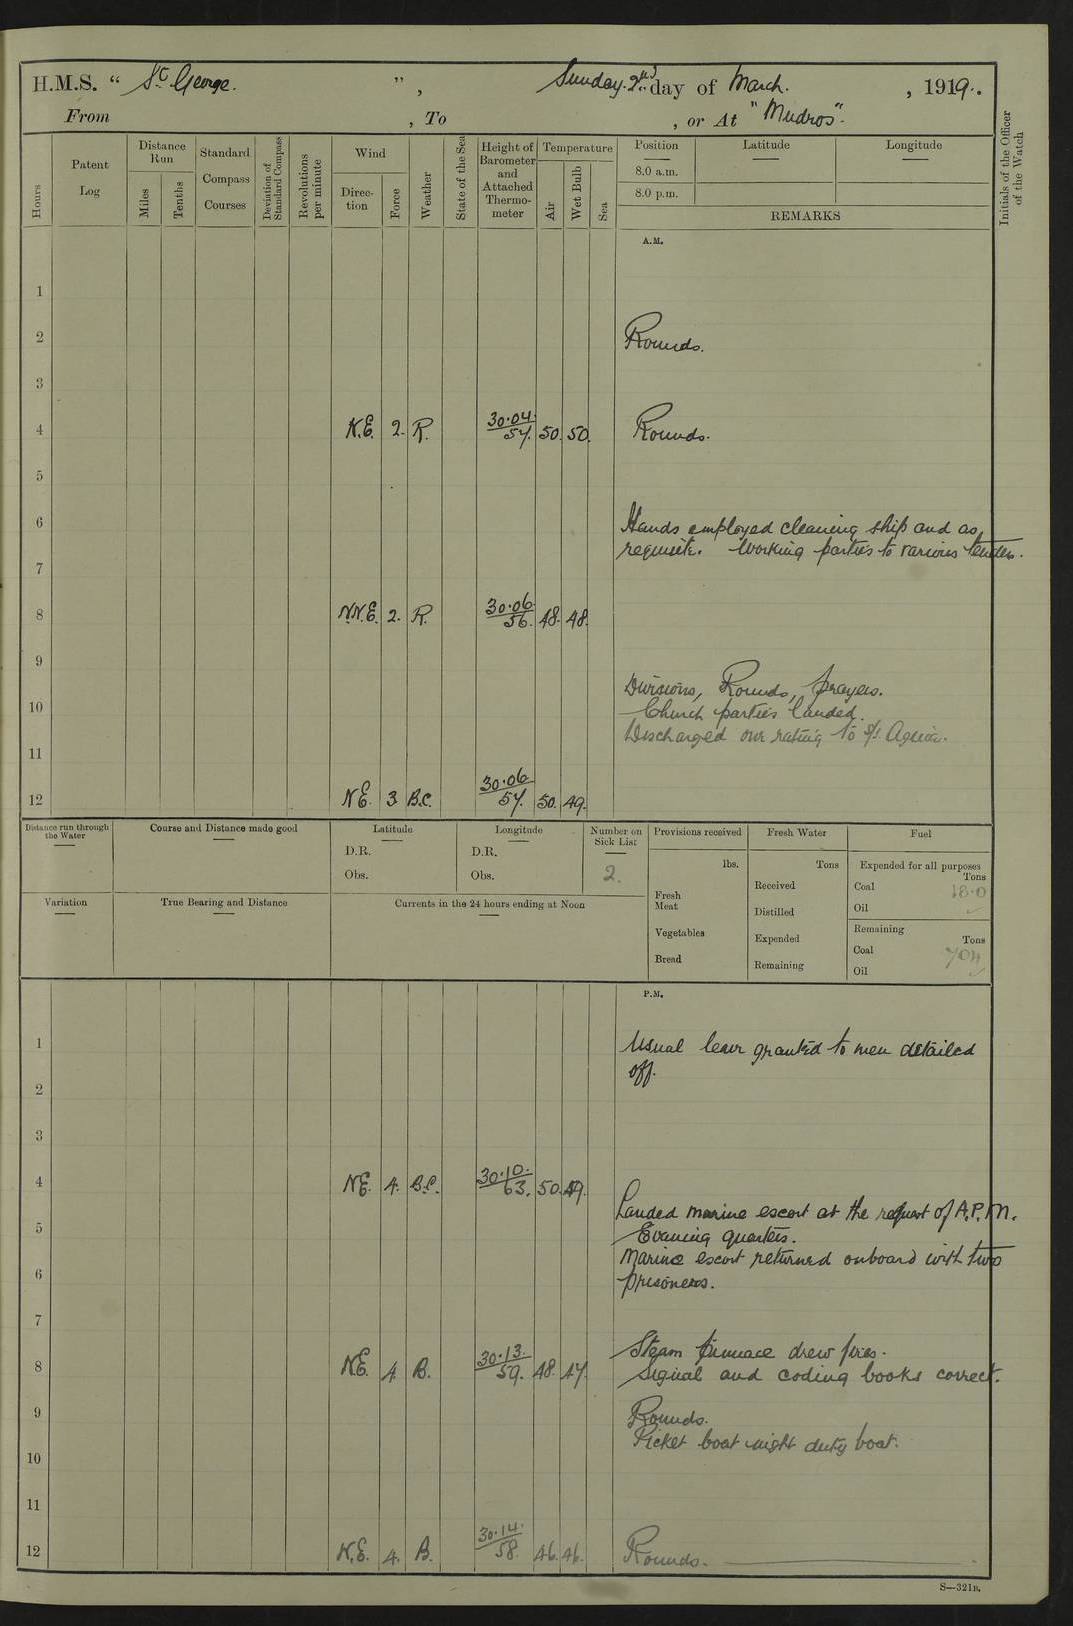 H.M.S. “ St. George. ” , Sunday. 2nd day of March. , 1919.
From , To , or At "Mudros".
Hours
Patent Log
Distance Run
Miles
Tenths
Standard Compass Courses
Deviation of Standard Compass
Revolutions per minute
Wind
Direction
Force
Weather
State of the Sea
Height of Barometer and Attached Thermometer
Temperature
Air
Wet Bulb
Sea
Position
8.0 a.m.
8.0 p.m.
Latitude
Longitude
REMARKS
Initials of the Officer of the Watch
A.M.
1
2 Rounds.
3
4 N.E. 2. R. 30.04. 57. 50. 50. Rounds.
5
6 Hands employed cleaning ship and as
requisite. Working parties to various tenders.
7
8 N.N.E. 2. R. 30.06. 56. 48. 48.
9
Divisions, Rounds, prayers.
10 Church parties landed.
Discharged one rating to
11
12 NE. 3 B.C. 30.06 57. 50. 49.
Distance run through the Water
Course and Distance made good
Latitude
D.R.
Obs.
Longitude
D.R.
Obs.
Number on Sick List
2.
Provisions received
lbs.
Fresh Meat
Vegetables
Bread
Fresh Water
Tons
Received
Distilled
Expended
Remaining
Fuel
Expended for all purposes
Tons
Coal 18.0
Oil
Remaining
Tons
Coal 704
Oil
Variation
True Bearing and Distance
Currents in the 24 hours ending at Noon
P.M.
1 Usual leave granted to men detailed
off.
2
3
4 NE. 4. B.C. 30.10. 63. 50. 49.
Landed marine escort at the request of A.P.M.
5 Evening quarters.
Marine escort returned onboard with two
6 prisoners.
7
8 N.E. 4 B. 30.13. 59. 48. 47. Steam pinnace drew fires.
Signal and coding books correct.
9 Rounds.
Picket boat night duty boat.
10
11
12 N.E. 4. B. 30.14. 58. 46. 46. Rounds.
S—321B.